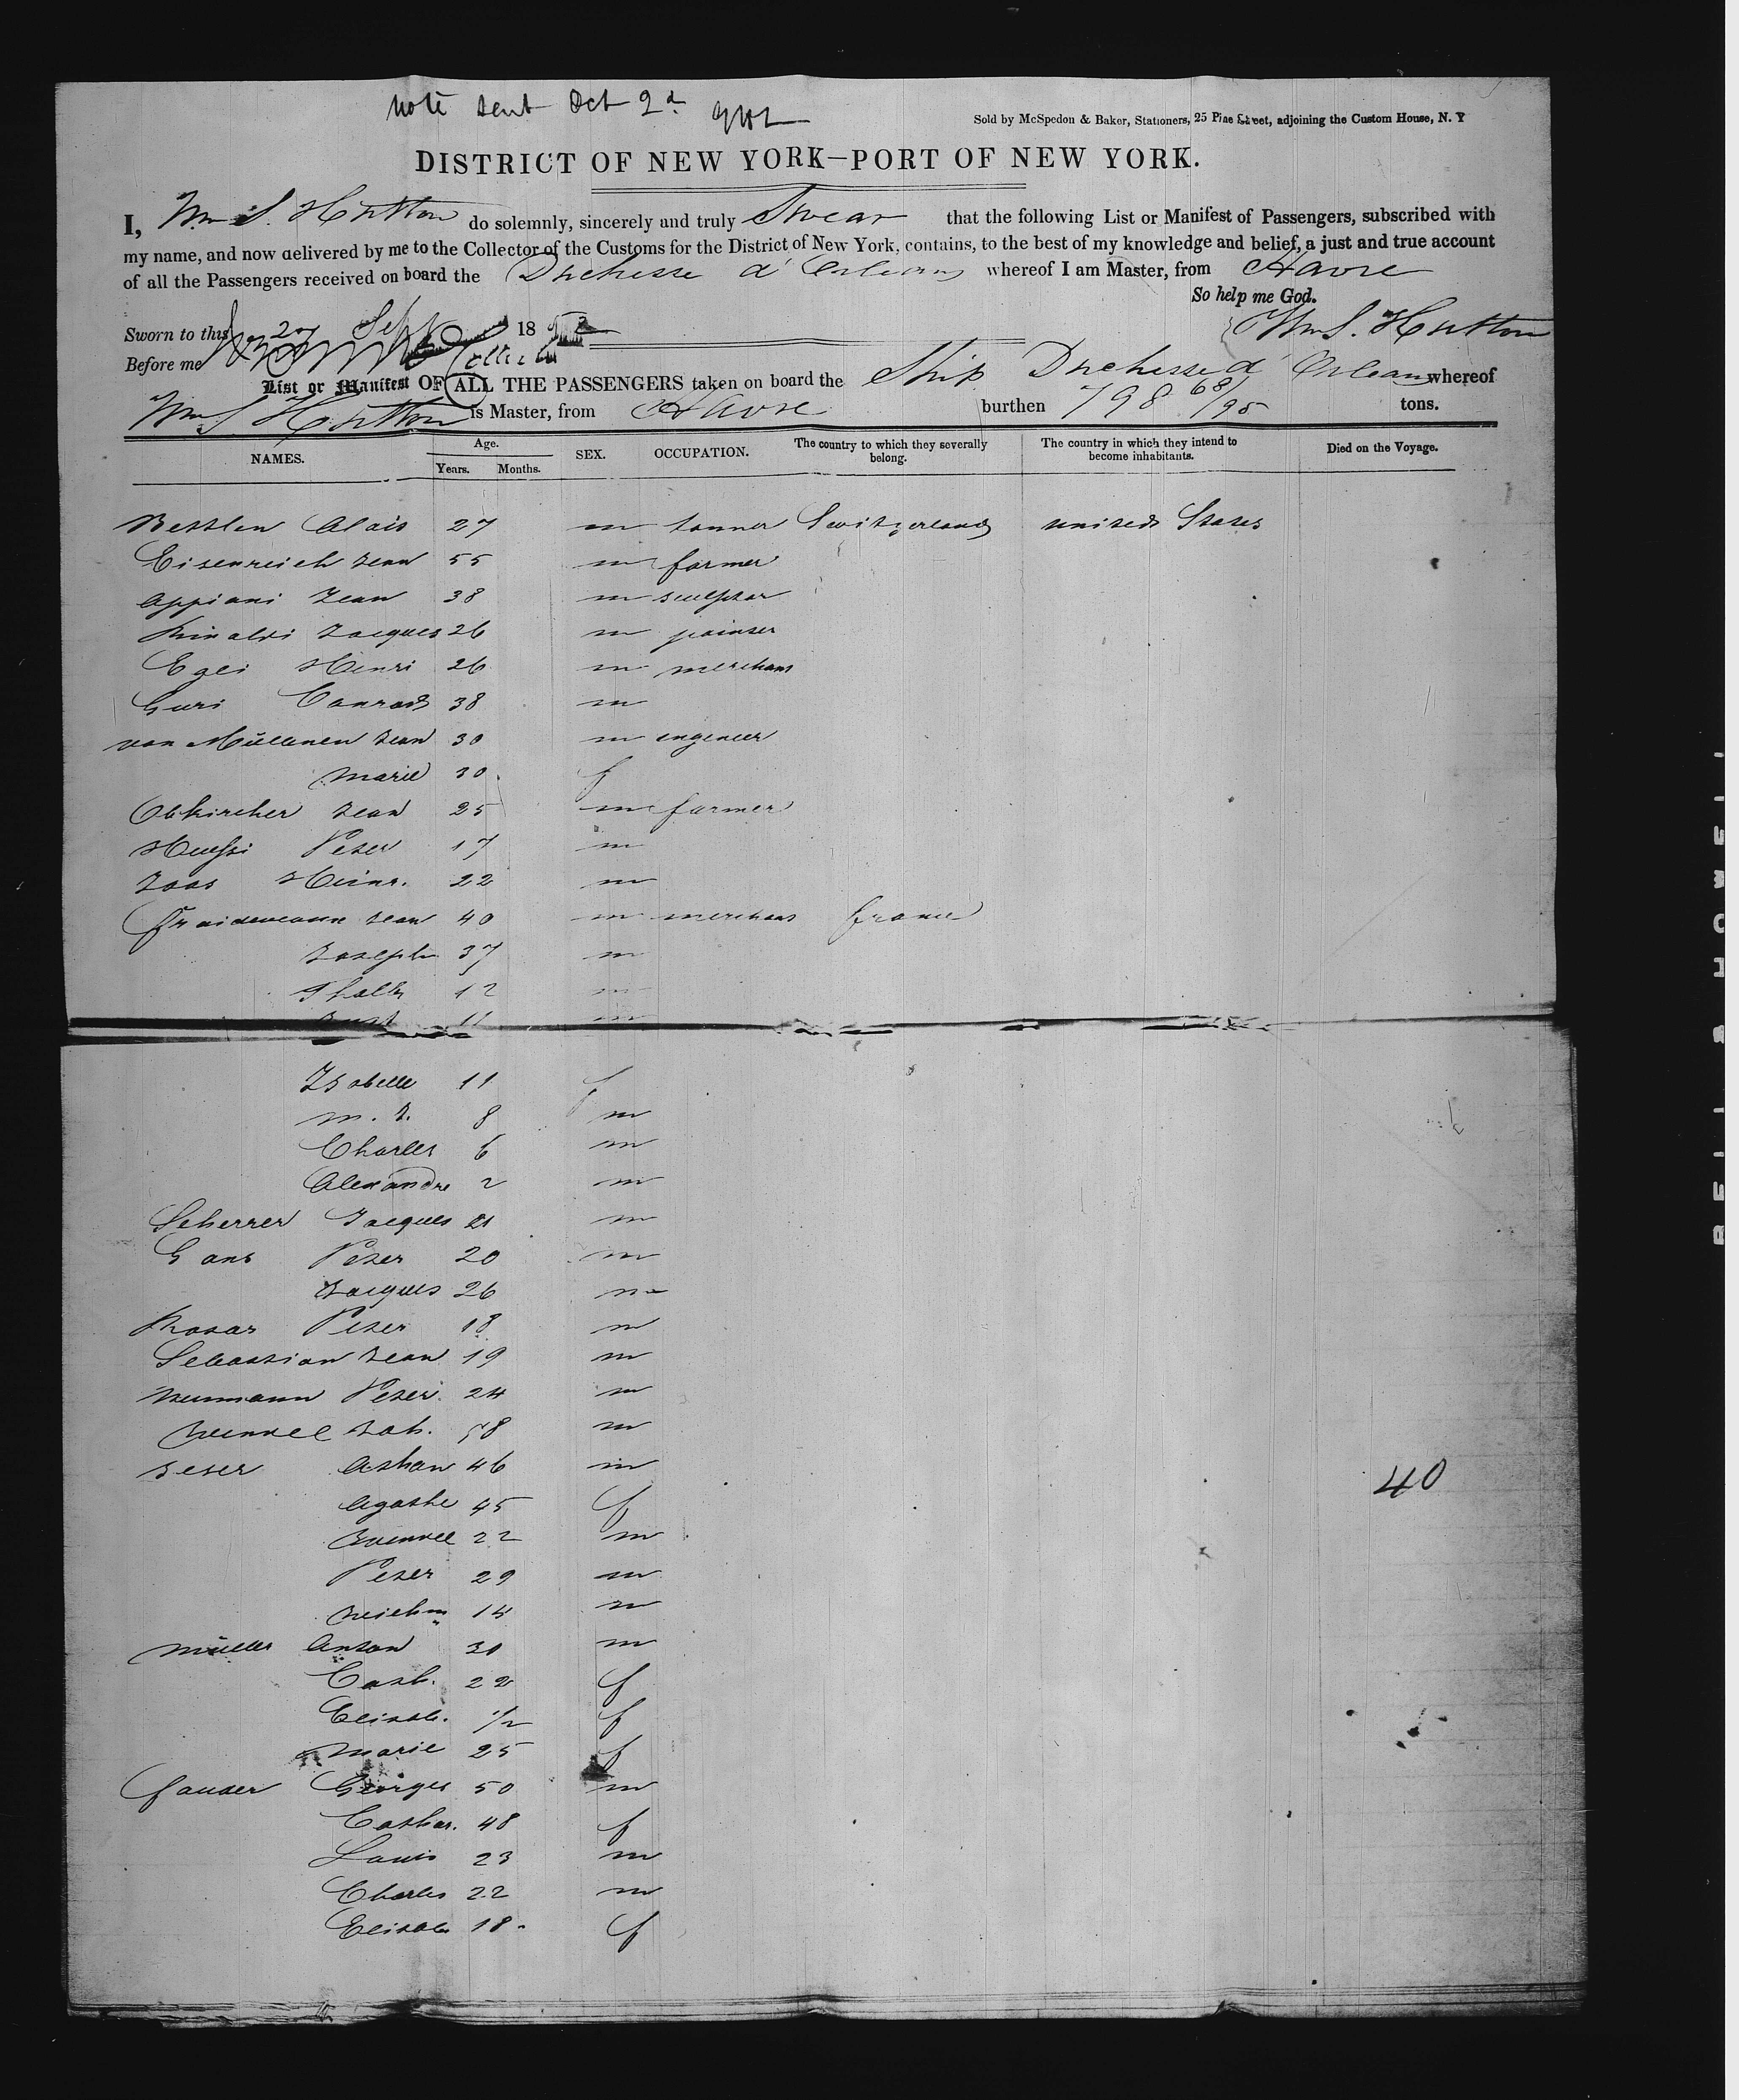 note sent Oct 2d
Sold by McSpedon & Baker, Stationers, 25 Pine Street, adjoining the Custom House, N. Y
DISTRICT OF NEW YORK—PORT OF NEW YORK.
I, Wm S. Hutton do solemnly, sincerely and truly Swear that the following List or Manifest of Passengers, subscribed with
my name, and now delivered by me to the Collector of the Customs for the District of New York, contains, to the best of my knowledge and belief, a just and true account
of all the Passengers received on board the Duchesse d'Orleans whereof I am Master, from Havre
So help me God.
Sworn to this 27 Sept 18
Wm S. Hutton
Before me
List or Manifest OF ALL THE PASSENGERS taken on board the Ship Duchesse d'Orleans whereof
Wm S Hutton is Master, from Havre burthen 798 68/95 tons.
NAMES. Age. Years. Months. SEX. OCCUPATION. The country to which they severally belong. The country in which they intend to become inhabitants. Died on the Voyage.
Alois 27 m tanner Switzerland united States
Eisenreich Jean 55 m farmer
Appiani Jean 38 m sculptor
Rinaldi Jacques 26 m painter
Egli Henri 26 m merchant
Conrad 38 m
von Müllenen Jean 30 m engeneer
Marie 30 f
Obkircher Jean 25 m farmer
Peter 17 m
Joos Heinr. 22 m
Jean 40 m merchant france
Joseph 37 m
12 m
11 m
Isabelle 11 f
m. J. 8 m
Charles 6 m
Alexandre 2 m
Scherrer Jacques 21 m
Gans Peter 20 m
Jacques 26 m
Peter 18 m
Sebastian Jean 19 m
Neumann Peter 24 m
m
Jeser 46 m
Agathe 45 f
22 m
Peter 29 m
14 m
40
müller Anton 30 m
Cath. 22 f
Elisab. 1/2 f
Marie 25 f
fauser Georges 50 m
Cathar. 48 f
Louis 23 m
Charles 22 m
Elisab 18 f